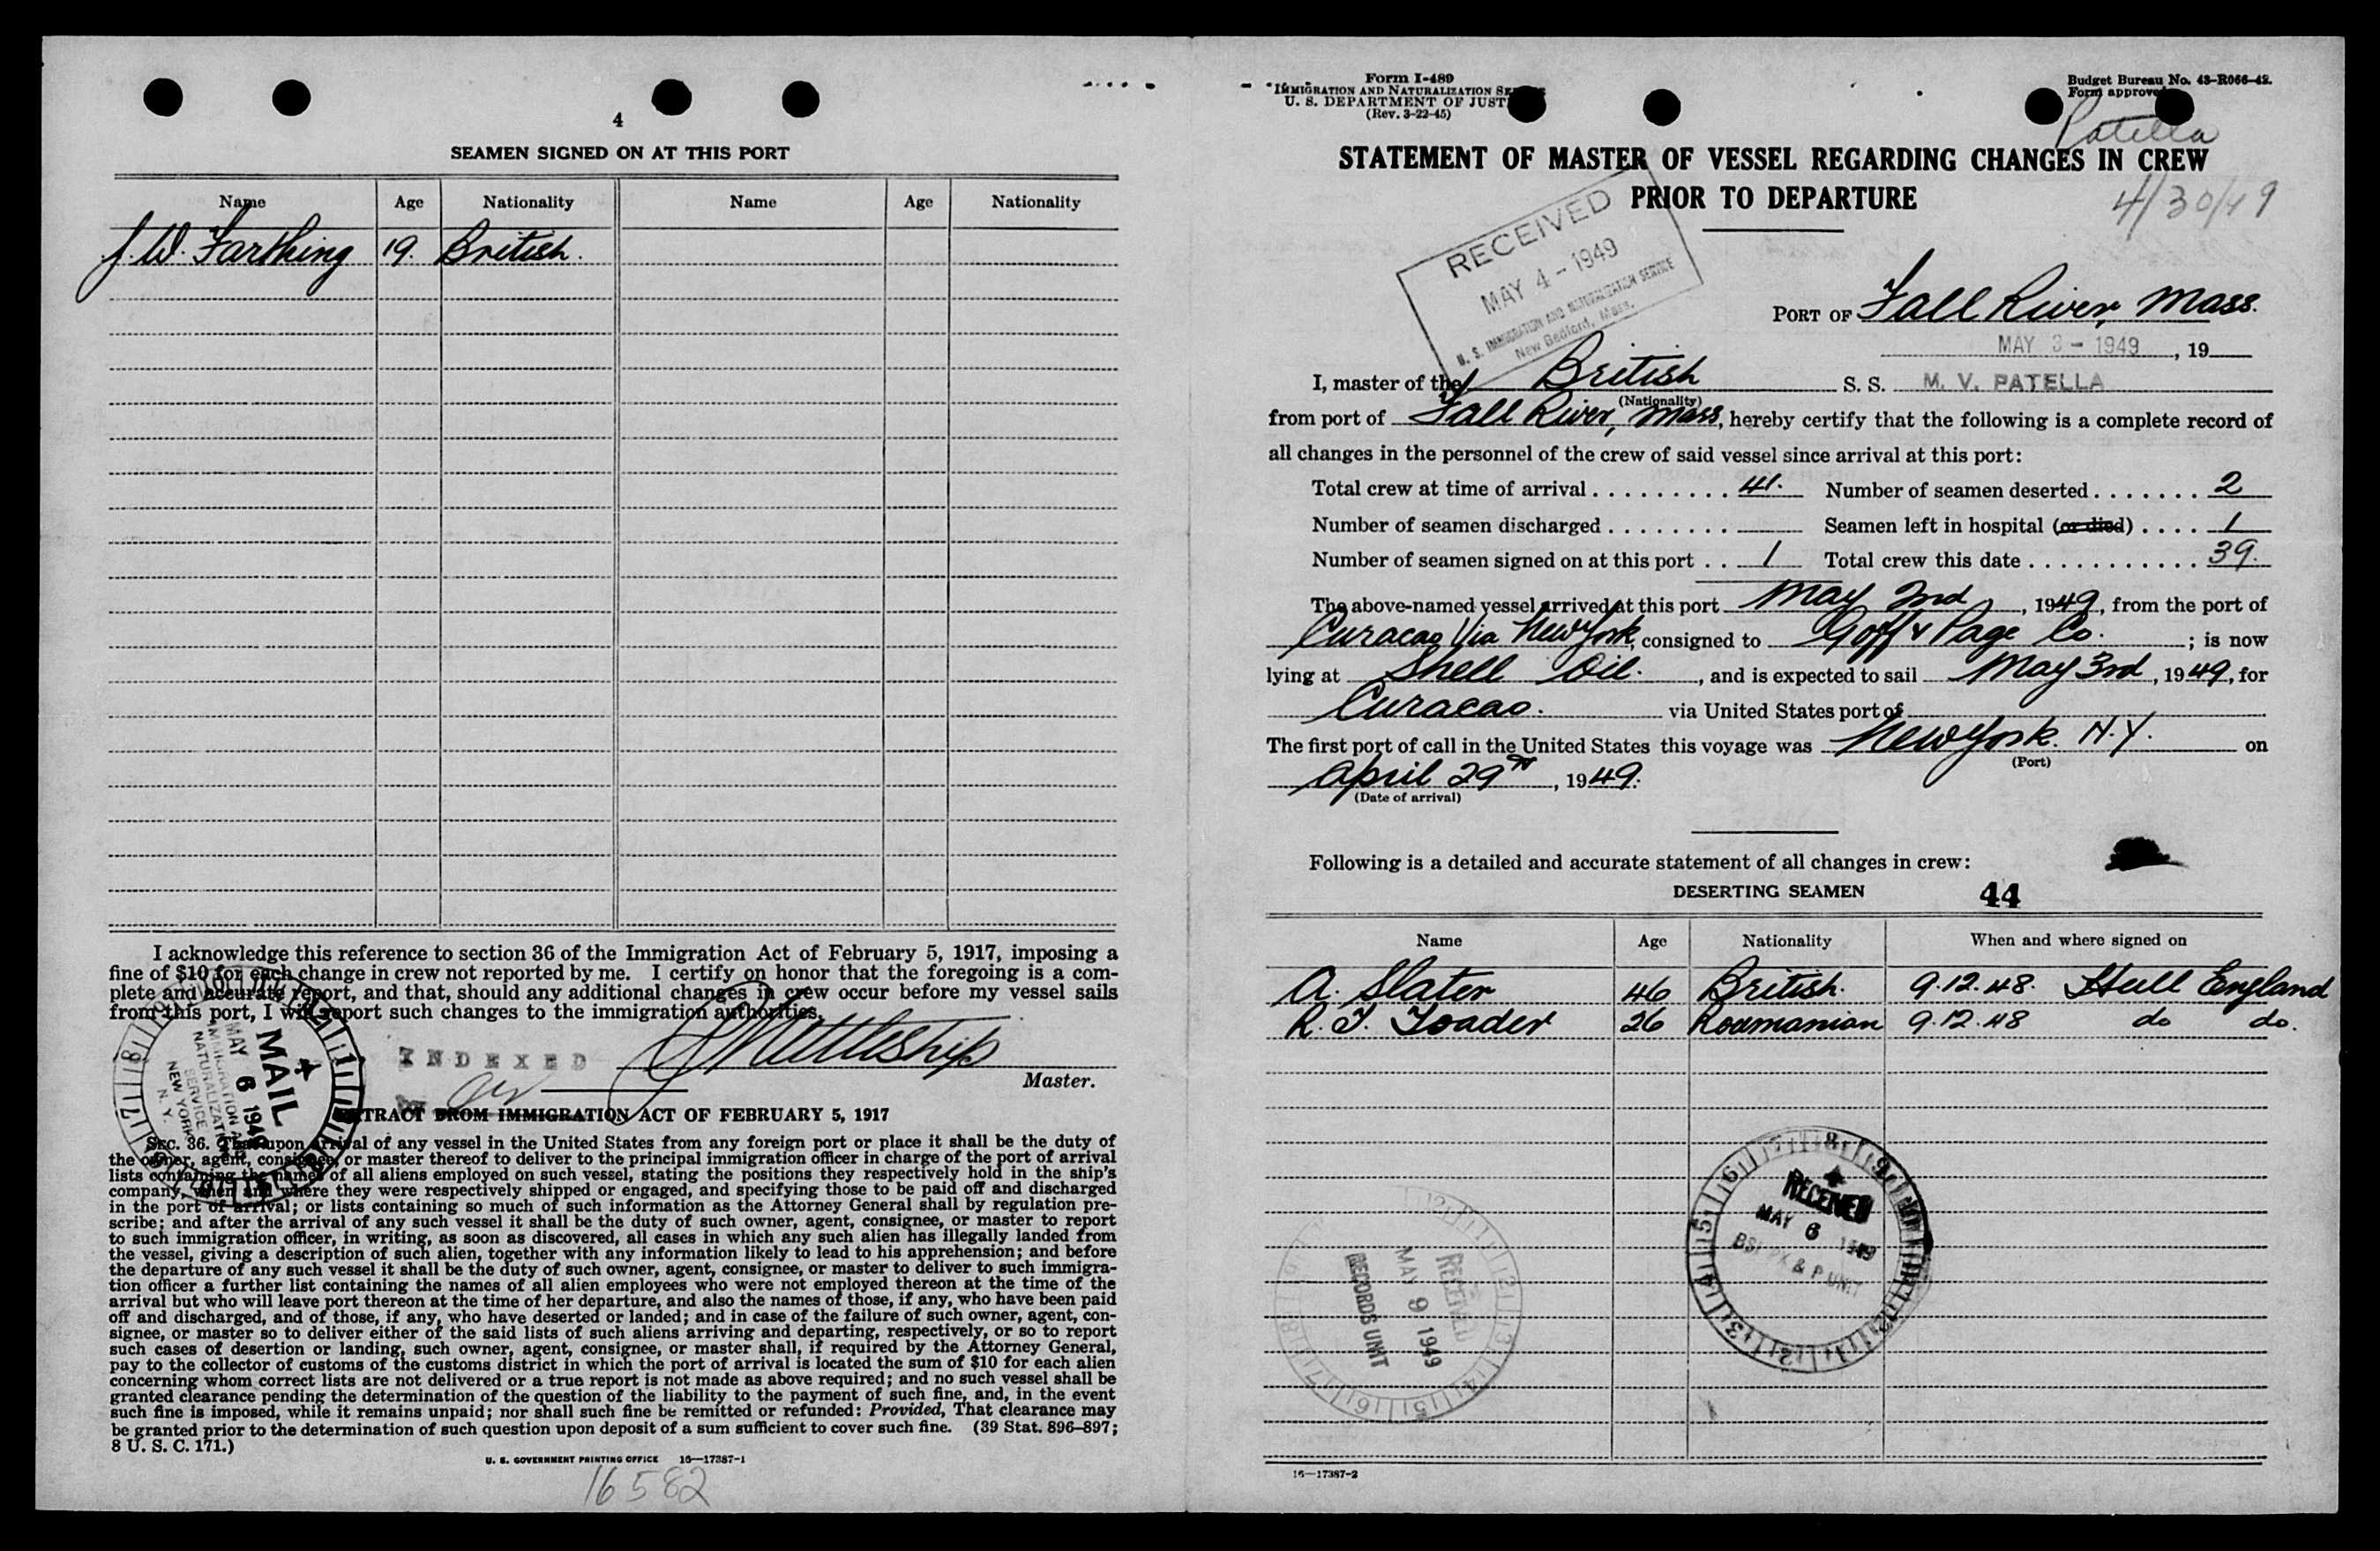 4
SEAMEN SIGNED ON AT THIS PORT
Name Age Nationality Name Age Nationality
J. W. Farthing 19. British.
I acknowledge this reference to section 36 of the Immigration Act of February 5, 1917, imposing a
fine of $10 for each change in crew not reported by me. I certify on honor that the foregoing is a com-
plete and accurate report, and that, should any additional changes in crew occur before my vessel sails
from this port, I will report such changes to the immigration authorities.
INDEXED
Master.
MAIL
MAY 6 1949
IMMIGRATION AND
NATURALIZATION
SERVICE
NEW YORK
N. Y.
EXTRACT FROM IMMIGRATION ACT OF FEBRUARY 5, 1917
SEC. 36. That upon arrival of any vessel in the United States from any foreign port or place it shall be the duty of
the owner, agent, consignee, or master thereof to deliver to the principal immigration officer in charge of the port of arrival
lists containing the names of all aliens employed on such vessel, stating the positions they respectively hold in the ship's
company, when and where they were respectively shipped or engaged, and specifying those to be paid off and discharged
in the port of arrival; or lists containing so much of such information as the Attorney General shall by regulation pre-
scribe; and after the arrival of any such vessel it shall be the duty of such owner, agent, consignee, or master to report
to such immigration officer, in writing, as soon as discovered, all cases in which any such alien has illegally landed from
the vessel, giving a description of such alien, together with any information likely to lead to his apprehension; and before
the departure of any such vessel it shall be the duty of such owner, agent, consignee, or master to deliver to such immigra-
tion officer a further list containing the names of all alien employees who were not employed thereon at the time of the
arrival but who will leave port thereon at the time of her departure, and also the names of those, if any, who have been paid
off and discharged, and of those, if any, who have deserted or landed; and in case of the failure of such owner, agent, con-
signee, or master so to deliver either of the said lists of such aliens arriving and departing, respectively, or so to report
such cases of desertion or landing, such owner, agent, consignee, or master shall, if required by the Attorney General,
pay to the collector of customs of the customs district in which the port of arrival is located the sum of $10 for each alien
concerning whom correct lists are not delivered or a true report is not made as above required; and no such vessel shall be
granted clearance pending the determination of the question of the liability to the payment of such fine, and, in the event
such fine is imposed, while it remains unpaid; nor shall such fine be remitted or refunded: Provided, That clearance may
be granted prior to the determination of such question upon deposit of a sum sufficient to cover such fine. (39 Stat. 896–897;
8 U. S. C. 171.)
U. S. GOVERNMENT PRINTING OFFICE 16—17387-1
16582
Form I-489
IMMIGRATION AND NATURALIZATION SERVICE
U. S. DEPARTMENT OF JUSTICE
(Rev. 3-22-45)
Budget Bureau No. 43-R066-42.
Form approved
Patella
STATEMENT OF MASTER OF VESSEL REGARDING CHANGES IN CREW
PRIOR TO DEPARTURE
4/30/49
RECEIVED
MAY 4 - 1949
U. S. IMMIGRATION AND NATURALIZATION SERVICE
New Bedford, Mass.
PORT OF Fall River, Mass.
MAY 3 - 1949, 19
I, master of the British S. S. M. V. PATELLA
(Nationality)
from port of Fall River, Mass, hereby certify that the following is a complete record of
all changes in the personnel of the crew of said vessel since arrival at this port:
Total crew at time of arrival . . . . . . . . . 41. Number of seamen deserted . . . . . . . 2
Number of seamen discharged . . . . . . . . Seamen left in hospital (or died) . . . . 1
Number of seamen signed on at this port . . 1 Total crew this date . . . . . . . . . . . 39.
The above-named vessel arrived at this port May 2nd, 1949, from the port of
Curacao Via New York, consigned to Goff & Page Co. ; is now
lying at Shell Oil. , and is expected to sail May 3rd, 1949, for
Curacao. via United States port of
The first port of call in the United States this voyage was New York. N.Y. on
(Port)
April 29th, 1949.
(Date of arrival)
Following is a detailed and accurate statement of all changes in crew:
DESERTING SEAMEN 44
Name Age Nationality When and where signed on
A. Slater 46 British. 9.12.48. Hull England
R. T. Toader 26 Roumanian 9.12.48 do do.
RECEIVED
MAY 6 1949
RECEIVED
MAY 9 1949
RECORDS UNIT
16—17387-2